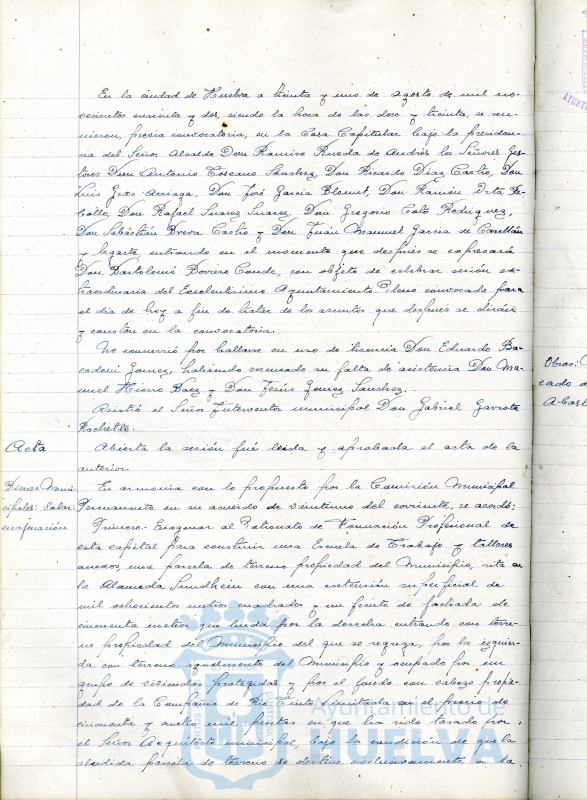 En la ciudad de Huelva a treinta y uno de agosto de mil no-
vecientos cuarenta y dos, siendo la hora de las doce y treinta, se reu-
nieron, previa convocatoria, en la Casa Capitular bajo la presiden-
cia del Señor Alcalde Don Ramiro Rueda de Andrés los Señores Ges-
tores Don Antonio Toscano Sánchez, Don Ricardo Díaz Castro, Don
Luis Gras Arriaga, Don José García Don Ramón Re-
bollo, Don Rafael Suarez Suarez, Don Gregorio Coto Rodríguez,
Don Sebastián Breva Castro y Don Juan Manuel García de
y Ugarte, entrando en el momento que después se expresará
Don Bartolomé Borrero Conde, con objeto de celebrar sesión ex-
traordinaria del Excelentísimo Ayuntamiento Pleno convocada para
el día de hoy a fin de tratar de los asuntos que después se dirán
y constan en la convocatoria.
No concurrió por hallarse en uso de licencia Don Eduardo
Gomez, habiendo excusado su falta de asistencia Don Ma-
nuel Hierro Baez y Don Jesús Gomez Sanchez.
Asistió el Señor Interventor municipal Don Gabriel Garrote
Acta
Abierta la sesión fué leida y aprobada el acta de la
anterior.
Bienes Muni-
cipales: Subas:
enagenación
En armonía con lo propuesto por la Comisión Municipal
Permanente en su acuerdo de veintiuno del corriente, se acordó:
Primero.- Enagenar al Patronato de Formación Profesional de
esta capital para construir una Escuela de Trabajo y talleres
anexos, una parcela de terreno propiedad del Municipio, sita en
la Alameda Sundheim con una extensión superficial de
mil ochocientos metros cuadrados y un frente de fachada de
cincuenta metros, que linda por la derecha entrando con terre-
no propiedad del Municipio del que se segrega, por la izquier-
da con terreno igualmente del Municipio y ocupado por un
grupo de viviendas protegidas y por el fondo con cabezo propie-
dad de la Compañía de Rio Tinto Limitada en el precio de
cincuenta y cuatro mil pesetas en que ha sido tasado por
el Señor Arquitecto municipal, bajo la condición de que la
aludida parcela de terreno se destine exclusivamente a la
Ayuntamiento de
HUELVA
Obras:
cado d